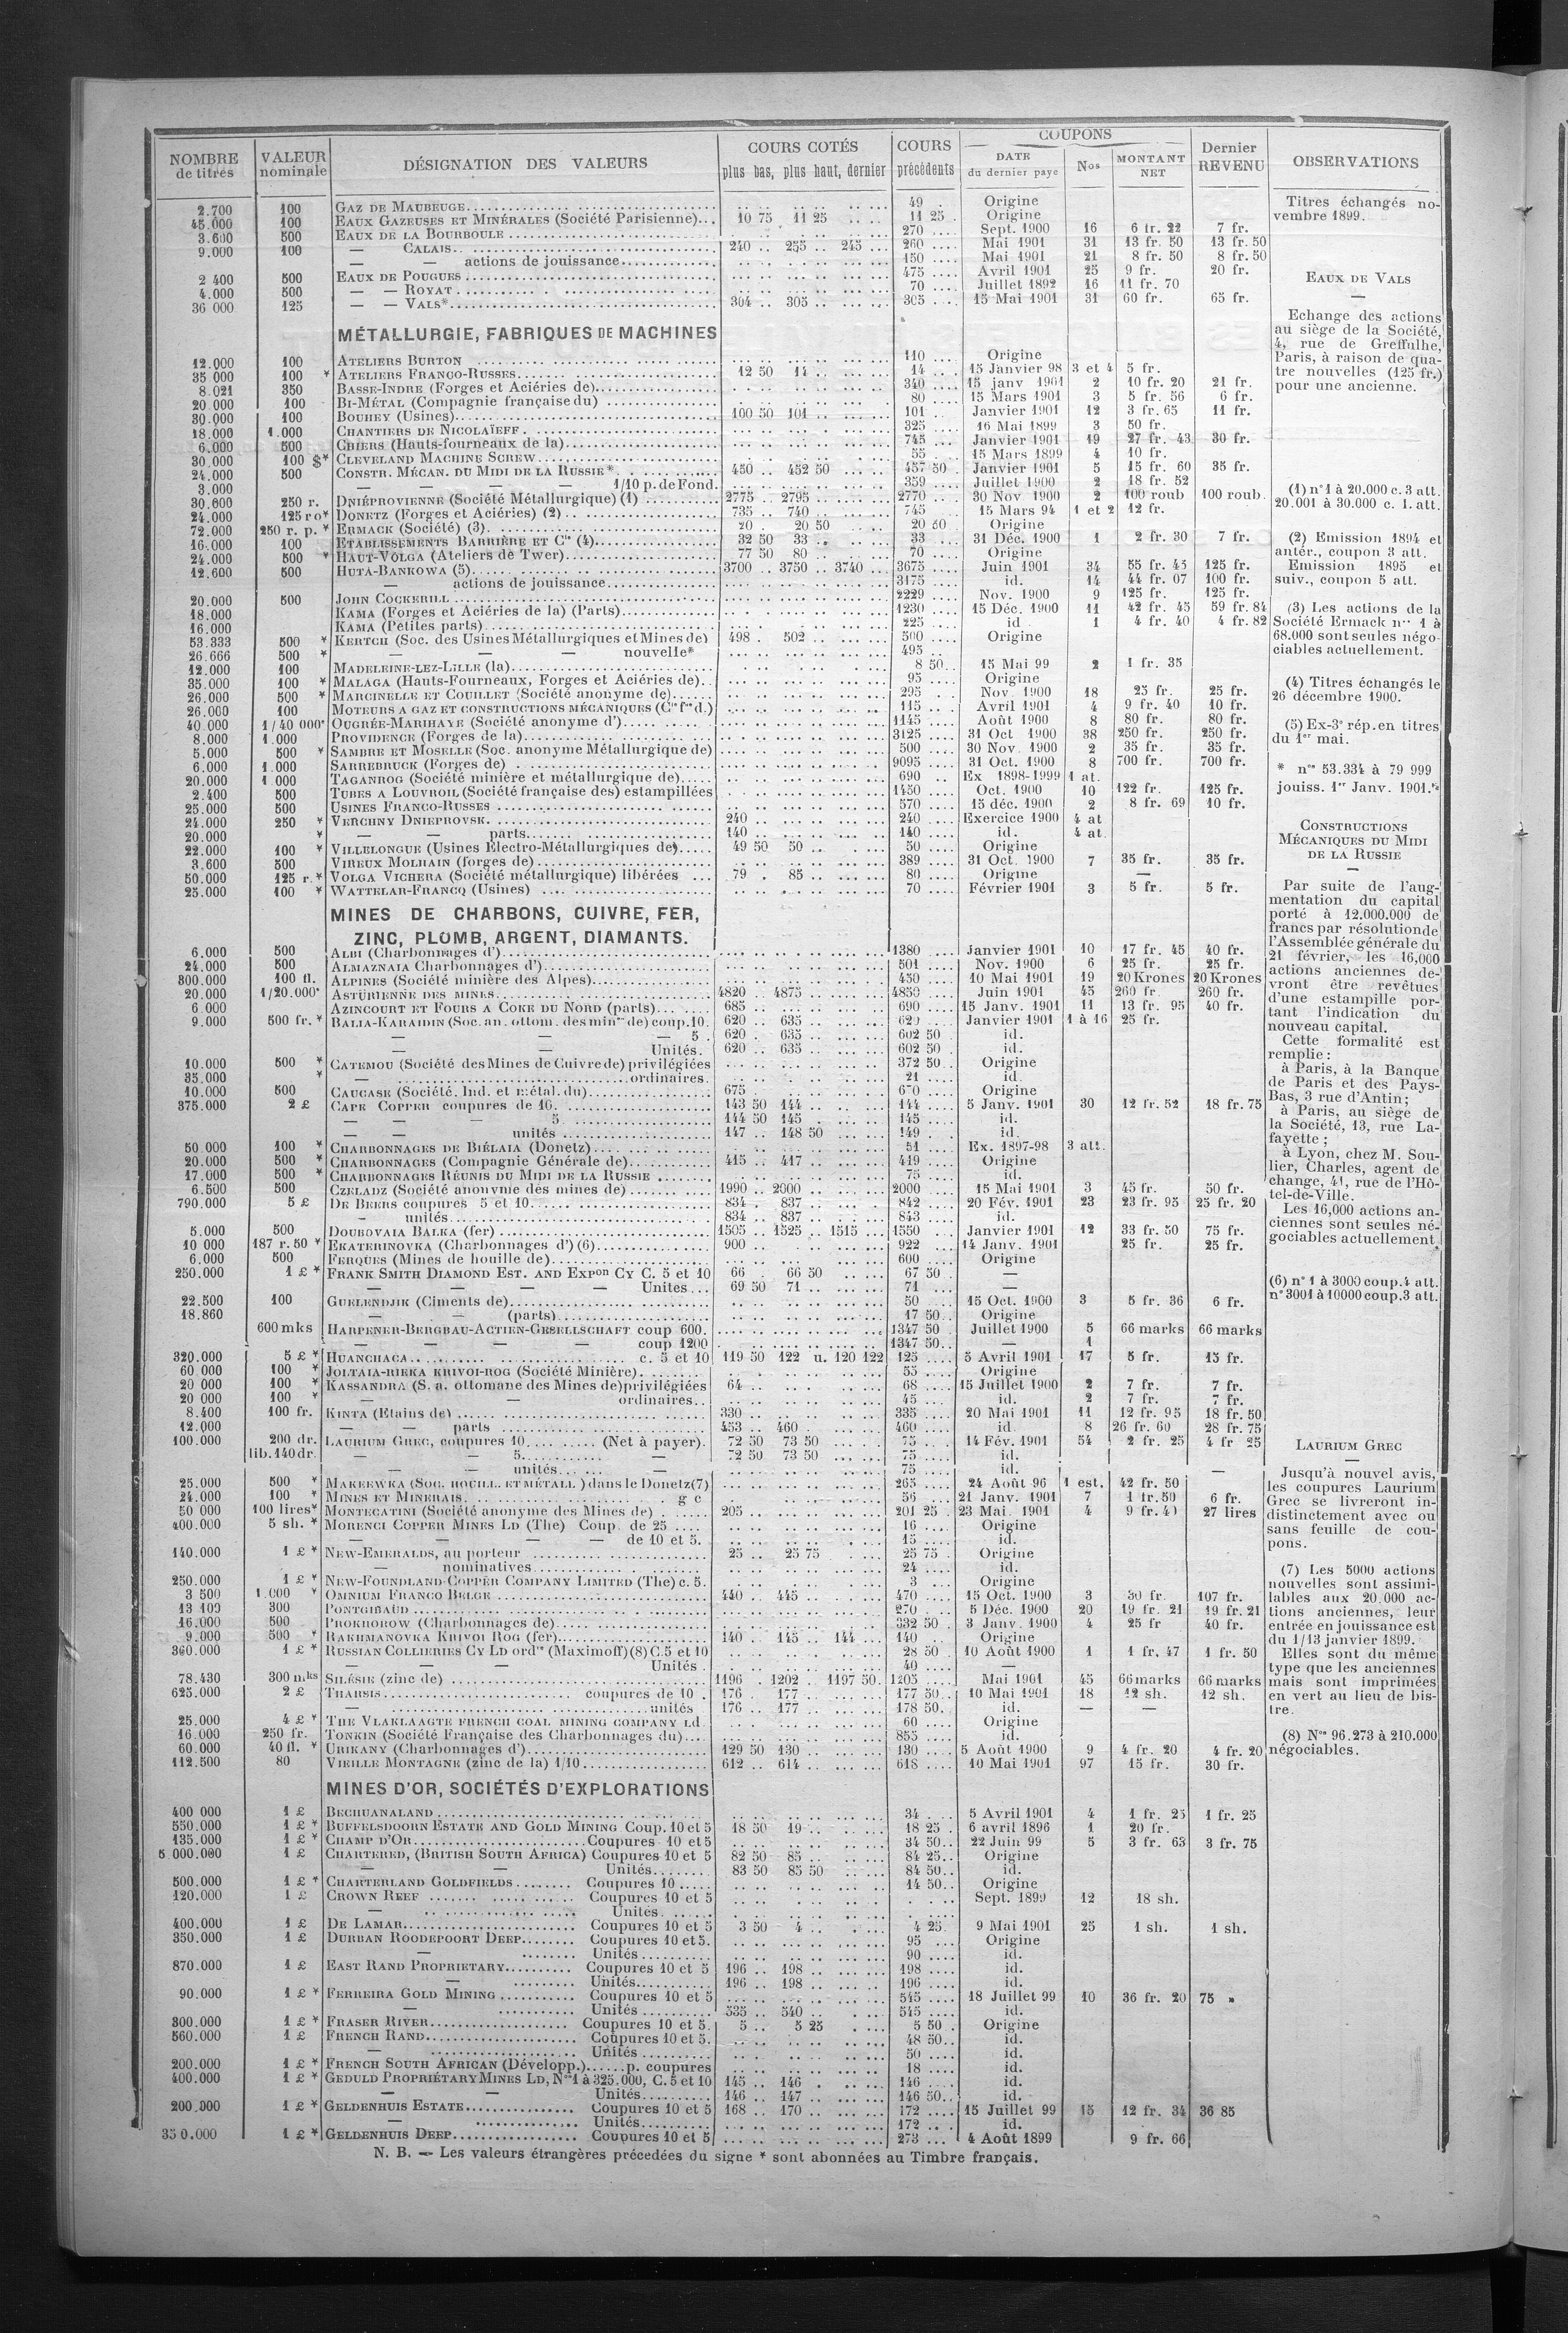 NOMBRE de titres | VALEUR nominale | DÉSIGNATION DES VALEURS | COURS COTÉS plus bas, plus haut, dernier | COURS précédents | COUPONS DATE du dernier payé | Nos | MONTANT NET | Dernier REVENU | OBSERVATIONS
2.700 100 GAZ DE MAUBEUGE 49 Origine
45.000 100 EAUX GAZEUSES ET MINÉRALES (Société Parisienne) 10 75 11 25 11 25 Origine
3.600 500 EAUX DE LA BOURBOULE 270 Sept. 1900 16 6 fr. 22 7 fr.
9.000 100 — CALAIS 240 255 245 260 Mai 1901 31 13 fr. 50 13 fr. 50
— — actions de jouissance 150 Mai 1901 21 8 fr. 50 8 fr. 50
2 400 500 EAUX DE POUGUES 475 Avril 1901 25 9 fr. 20 fr.
4.000 500 — — ROYAT 70 Juillet 1892 16 11 fr. 70
36 000 125 — — VALS* 304 305 305 15 Mai 1901 31 60 fr. 65 fr.
MÉTALLURGIE, FABRIQUES DE MACHINES
12.000 100 ATELIERS BURTON 110 Origine
35 000 100 * ATELIERS FRANCO-RUSSES 12 50 14 14 15 Janvier 98 3 et 4 5 fr.
8.021 350 BASSE-INDRE (Forges et Aciéries de) 340 15 janv 1901 2 10 fr. 20 21 fr.
20.000 100 BI-MÉTAL (Compagnie française du) 80 15 Mars 1901 3 5 fr. 56 6 fr.
30.000 100 BOUHEY (Usines) 100 50 101 101 Janvier 1901 12 3 fr. 65 11 fr.
18.000 1.000 CHANTIERS DE NICOLAÏEFF 325 16 Mai 1899 3 50 fr.
6.000 500 CHIERS (Hauts-fourneaux de la) 745 Janvier 1901 19 27 fr. 43 30 fr.
30.000 100 $* CLEVELAND MACHINE SCREW 55 15 Mars 1899 4 10 fr.
24.000 500 CONSTR. MÉCAN. DU MIDI DE LA RUSSIE* 450 452 50 457 50 Janvier 1901 5 15 fr. 60 35 fr.
3.000 — — — — 1/10 p. de Fond. 359 Juillet 1900 2 18 fr. 52
30.600 250 r. DNIÉPROVIENNE (Société Métallurgique) (1) 2775 2795 2770 30 Nov 1900 2 100 roub 100 roub.
24.000 125 ro* DONETZ (Forges et Aciéries) (2) 735 740 745 15 Mars 94 1 et 2 12 fr.
72.000 250 r. p. * ERMACK (Société) (3) 20 20 50 20 60 Origine
16.000 100 ETABLISSEMENTS BARRIÈRE ET Cie (4) 32 50 33 33 31 Déc. 1900 1 2 fr. 30 7 fr.
24.000 500 * HAUT-VOLGA (Ateliers de Twer) 77 50 80 70 Origine
12.600 500 HUTA-BANKOWA (5) 3700 3750 3740 3675 Juin 1901 34 55 fr. 45 125 fr.
— actions de jouissance 3175 id. 14 44 fr. 07 100 fr.
20.000 500 JOHN COCKERILL 2229 Nov. 1900 9 125 fr. 125 fr.
18.000 KAMA (Forges et Aciéries de la) (Parts) 1230 15 Déc. 1900 11 42 fr. 45 59 fr. 84
16.000 KAMA (Petites parts) 225 id 1 4 fr. 40 4 fr. 82
53.333 500 * KERTCH (Soc. des Usines Métallurgiques et Mines de) 498 502 500 Origine
26.666 500 * — — — nouvelle* 495
12.000 100 MADELEINE-LEZ-LILLE (la) 8 50 15 Mai 99 2 1 fr. 35
35.000 100 * MALAGA (Hauts-Fourneaux, Forges et Aciéries de) 95 Origine
26.000 500 * MARCINELLE ET COUILLET (Société anonyme de) 295 Nov. 1900 18 25 fr. 25 fr.
26.000 100 MOTEURS A GAZ ET CONSTRUCTIONS MÉCANIQUES (Cie fse d.) 115 Avril 1901 4 9 fr. 40 10 fr.
40.000 1/40 000e OUGRÉE-MARIHAYE (Société anonyme d') 1145 Août 1900 8 80 fr. 80 fr.
8.000 1.000 PROVIDENCE (Forges de la) 3125 31 Oct 1900 38 250 fr. 250 fr.
5.000 500 * SAMBRE ET MOSELLE (Soc. anonyme Métallurgique de) 500 30 Nov. 1900 2 35 fr. 35 fr.
6.000 1.000 SARREBRUCK (Forges de) 9095 31 Oct. 1900 8 700 fr. 700 fr.
20.000 1 000 TAGANROG (Société minière et métallurgique de) 690 Ex 1898-1999 1 at.
2.400 500 TUBES A LOUVROIL (Société française des) estampillées 1450 Oct. 1900 10 122 fr. 125 fr.
25.000 500 USINES FRANCO-RUSSES 570 15 déc. 1900 2 8 fr. 69 10 fr.
24.000 250 * VERCHNY DNIEPROVSK 240 240 Exercice 1900 4 at
20.000 * — — parts 140 140 id. 4 at.
22.000 100 * VILLELONGUE (Usines Electro-Métallurgiques de) 49 50 50 50 Origine
3.600 500 VIREUX MOLHAIN (forges de) 389 31 Oct. 1900 7 35 fr. 35 fr.
50.000 125 r.* VOLGA VICHERA (Société métallurgique) libérées 79 85 80 Origine —
25.000 100 * WATTELAR-FRANCQ (Usines) 70 Février 1901 3 5 fr. 5 fr.
MINES DE CHARBONS, CUIVRE, FER,
ZINC, PLOMB, ARGENT, DIAMANTS.
6.000 500 ALBI (Charbonnages d') 1380 Janvier 1901 10 17 fr. 45 40 fr.
24.000 500 ALMAZNAIA Charbonnages d') 501 Nov. 1900 6 25 fr. 25 fr.
300.000 100 fl. ALPINES (Société minière des Alpes) 450 10 Mai 1901 19 20 Krones 20 Krones
20.000 1/20.000e ASTURIENNE DES MINES 4820 4875 4850 Juin 1901 45 260 fr 260 fr.
6.000 AZINCOURT ET FOURS A COKE DU NORD (parts) 685 690 15 Janv. 1901 11 13 fr. 95 40 fr.
9.000 500 fr. * BALIA-KARAIDIN (Soc. an. ottom. des mines de) coup. 10. 620 635 620 Janvier 1901 1 à 16 25 fr.
— — 5 620 635 602 50 id.
— — Unités. 620 635 602 50 id.
10.000 500 * CATEMOU (Société des Mines de Cuivre de) privilégiées 372 50 Origine
35.000 * — ordinaires. 21 id.
10.000 500 CAUCASE (Société. Ind. et métal. du) 675 670 Origine
375.000 2 £ CAPE COPPER coupures de 10. 143 50 144 144 5 Janv. 1901 30 12 fr. 52 18 fr. 75
— — — 5 144 50 145 145 id.
— — unités 147 148 50 149 id.
50 000 100 * CHARBONNAGES DE BIÉLAIA (Donetz) 51 Ex. 1897-98 3 att.
20.000 500 * CHARBONNAGES (Compagnie Générale de) 415 417 419 Origine
17.000 500 * CHARBONNAGES RÉUNIS DU MIDI DE LA RUSSIE 75 id.
6.500 500 CZELADZ (Société anonyme des mines de) 1990 2000 2000 15 Mai 1901 3 45 fr. 50 fr.
790.000 5 £ DE BEERS coupures 5 et 10. 834 837 842 20 Fév. 1901 23 23 fr. 95 25 fr. 20
- unités 834 837 843 id.
5.000 500 DOUBOVAIA BALKA (fer) 1505 1525 1515 1550 Janvier 1901 12 33 fr. 50 75 fr.
10 000 187 r. 50 * EKATERINOVKA (Charbonnages d') (6) 900 922 14 Janv. 1901 25 fr. 25 fr.
6.000 500 FERQUES (Mines de houille de) 600 Origine
250.000 1 £ * FRANK SMITH DIAMOND EST. AND EXPon CY C. 5 et 10 66 66 50 67 50 —
— — — Unites 69 50 71 71 —
22.500 100 GUELENDJIK (Ciments de) 50 15 Oct. 1900 3 5 fr. 36 6 fr.
18.860 — (parts) 17 50 Origine
600 mks HARPENER-BERGBAU-ACTIEN-GESELLSCHAFT coup 600. 1347 50 Juillet 1900 5 66 marks 66 marks
— — — coup 1200 1347 50 — 1
320.000 5 £ * HUANCHACA c. 5 et 10 119 50 122 u. 120 122 125 5 Avril 1901 17 5 fr. 15 fr.
60 000 100 * JOLTAIA-RIEKA KRIVOI-ROG (Société Minière) 55 Origine
20 000 100 * KASSANDRA (S. a. ottomane des Mines de) privilégiées 64 68 15 Juillet 1900 2 7 fr. 7 fr.
20 000 100 * — — ordinaires 45 id. 2 7 fr. 7 fr.
8.400 100 fr. KINTA (Etains de) 330 335 20 Mai 1901 11 12 fr. 95 18 fr. 50
12.000 — — parts 453 460 460 id 8 26 fr. 60 28 fr. 75
100.000 200 dr. LAURIUM GREC, coupures 10 (Net à payer). 72 50 73 50 75 14 Fév. 1901 54 2 fr. 25 4 fr 25
lib. 140 dr. — — 5 — 72 50 73 50 75 id.
— — unités — 75 id. —
25.000 500 * MAKEEWKA (Soc. HOUILL. ET MÉTALL) dans le Donetz (7) 265 24 Août 96 1 est. 42 fr. 50
24.000 100 * MINES ET MINERAIS g c 56 21 Janv. 1901 7 1 fr. 50 6 fr.
50 000 100 lires* MONTECATINI (Société anonyme des Mines de) 205 201 25 23 Mai 1901 4 9 fr. 27 lires
400.000 5 sh. * MORENCI COPPER MINES LD (The) Coup. de 25 16 Origine
— — — — de 10 et 5. 15 id.
140.000 1 £ * NEW-EMERALDS, au porteur 25 25 75 25 75 Origine
— nominatives 24 id.
250.000 1 £ * NEW-FOUNDLAND-COPPER COMPANY LIMITED (The) c. 5. 3 Origine
3 500 1.000 * OMNIUM FRANCO BELGE 440 445 470 15 Oct. 1900 3 30 fr. 107 fr.
13 100 300 PONTGIBAUD 270 5 Déc. 1900 20 19 fr. 21 19 fr. 21
16.000 500 PROKHOROW (Charbonnages de) 332 50 3 Janv. 1900 4 25 fr 40 fr.
9.000 500 * RAKHMANOVKA KRIVOI ROG (fer) 140 145 144 140 Origine
360.000 1 £ * RUSSIAN COLLIERIES CY LD ordres (Maximoff) (8) C. 5 et 10 28 50 10 Août 1900 1 1 fr. 47 1 fr. 50
— — — Unités 40 —
78.430 300 mks SILÉSIE (zinc de) 1196 1202 1197 50 1205 Mai 1901 45 66 marks 66 marks
625.000 2 £ THARSIS coupures de 10 176 177 177 50 10 Mai 1901 18 12 sh. 12 sh.
— unités 176 177 178 50 id. — —
25.000 4 £ * THE VLAKLAAGTE FRENCH COAL MINING COMPANY Ld 60 Origine
16.000 250 fr. TONKIN (Société Française des Charbonnages du) 855 id.
60.000 40 fl. * URIKANY (Charbonnages d') 129 50 130 130 5 Août 1900 9 4 fr. 20 4 fr. 20
112.500 80 VIEILLE MONTAGNE (zinc de la) 1/10 612 614 618 10 Mai 1901 97 15 fr. 30 fr.
MINES D'OR, SOCIÉTÉS D'EXPLORATIONS
400 000 1 £ BECHUANALAND 34 5 Avril 1901 4 1 fr. 25 1 fr. 25
550.000 1 £ * BUFFELSDOORN ESTATE AND GOLD MINING Coup. 10 et 5 18 50 19 18 25 6 avril 1896 1 20 fr.
135.000 1 £ * CHAMP D'OR Coupures 10 et 5 34 50 22 Juin 99 5 3 fr. 63 3 fr. 75
5 000.000 1 £ CHARTERED, (BRITISH SOUTH AFRICA) Coupures 10 et 5 82 50 85 84 25 Origine
— — Unités 83 50 85 50 84 50 id.
500.000 1 £ * CHARTERLAND GOLDFIELDS Coupures 10 14 50 Origine
120.000 1 £ CROWN REEF Coupures 10 et 5 Sept. 1899 12 18 sh.
— Unités
400.000 1 £ DE LAMAR Coupures 10 et 5 3 50 4 4 25 9 Mai 1901 25 1 sh. 1 sh.
350.000 1 £ DURBAN ROODEPOORT DEEP Coupures 10 et 5. 95 Origine
— Unités 90 id.
870.000 1 £ EAST RAND PROPRIETARY Coupures 10 et 5 196 198 198 id.
— Unités 196 198 196 id.
90.000 1 £ * FERREIRA GOLD MINING Coupures 10 et 5 545 18 Juillet 99 10 36 fr. 20 75 »
— Unités 535 540 545 id.
300.000 1 £ * FRASER RIVER Coupures 10 et 5. 5 5 25 5 50 Origine
560.000 1 £ FRENCH RAND Coupures 10 et 5. 48 50 id.
— Unités 50 id.
200.000 1 £ * FRENCH SOUTH AFRICAN (Développ.) p. coupures 18 id.
400.000 1 £ * GEDULD PROPRIÉTARY MINES LD, Nos 1 à 325.000, C. 5 et 10 145 146 146 id.
— — Unités 146 147 146 50 id.
200.000 1 £ * GELDENHUIS ESTATE Coupures 10 et 5 168 170 172 15 Juillet 99 15 12 fr. 34 36 85
— Unités 172 id.
350.000 1 £ * GELDENHUIS DEEP Coupures 10 et 5 273 4 Août 1899 9 fr. 66
N. B. — Les valeurs étrangères précedées du signe * sont abonnées au Timbre français.
Titres échangés no-
vembre 1899.
EAUX DE VALS
—
Echange des actions
au siège de la Société,
4, rue de Greffulhe,
Paris, à raison de qua-
tre nouvelles (125 fr.)
pour une ancienne.
(1) n° 1 à 20.000 c. 3 att.
20.001 à 30.000 c. 1. att.
(2) Emission 1894 et
antér., coupon 3 att.
Emission 1895 et
suiv., coupon 5 att.
(3) Les actions de la
Société Ermack nos 1 à
68.000 sont seules négo-
ciables actuellement.
(4) Titres échangés le
26 décembre 1900.
(5) Ex-3e rép. en titres
du 1er mai.
* nos 53.334 à 79 999
jouiss. 1er Janv. 1901.
CONSTRUCTIONS
MÉCANIQUES DU MIDI
DE LA RUSSIE
—
Par suite de l'aug-
mentation du capital
porté à 12.000.000 de
francs par résolution de
l'Assemblée générale du
21 février, les 16,000
actions anciennes de-
vront être revêtues
d'une estampille por-
tant l'indication du
nouveau capital.
Cette formalité est
remplie :
à Paris, à la Banque
de Paris et des Pays-
Bas, 3 rue d'Antin;
à Paris, au siège de
la Société, 13, rue La-
fayette ;
à Lyon, chez M. Sou-
lier, Charles, agent de
change, 41, rue de l'Hô-
tel-de-Ville.
Les 16,000 actions an-
ciennes sont seules né-
gociables actuellement.
(6) n° 1 à 3000 coup. 4 att.
n° 3001 à 10000 coup. 3 att.
LAURIUM GREC
—
Jusqu'à nouvel avis,
les coupures Laurium
Grec se livreront in-
distinctement avec ou
sans feuille de cou-
pons.
(7) Les 5000 actions
nouvelles sont assimi-
lables aux 20.000 ac-
tions anciennes, leur
entrée en jouissance est
du 1/13 janvier 1899.
Elles sont du même
type que les anciennes
mais sont imprimées
en vert au lieu de bis-
tre.
(8) Nos 96.273 à 210.000
négociables.